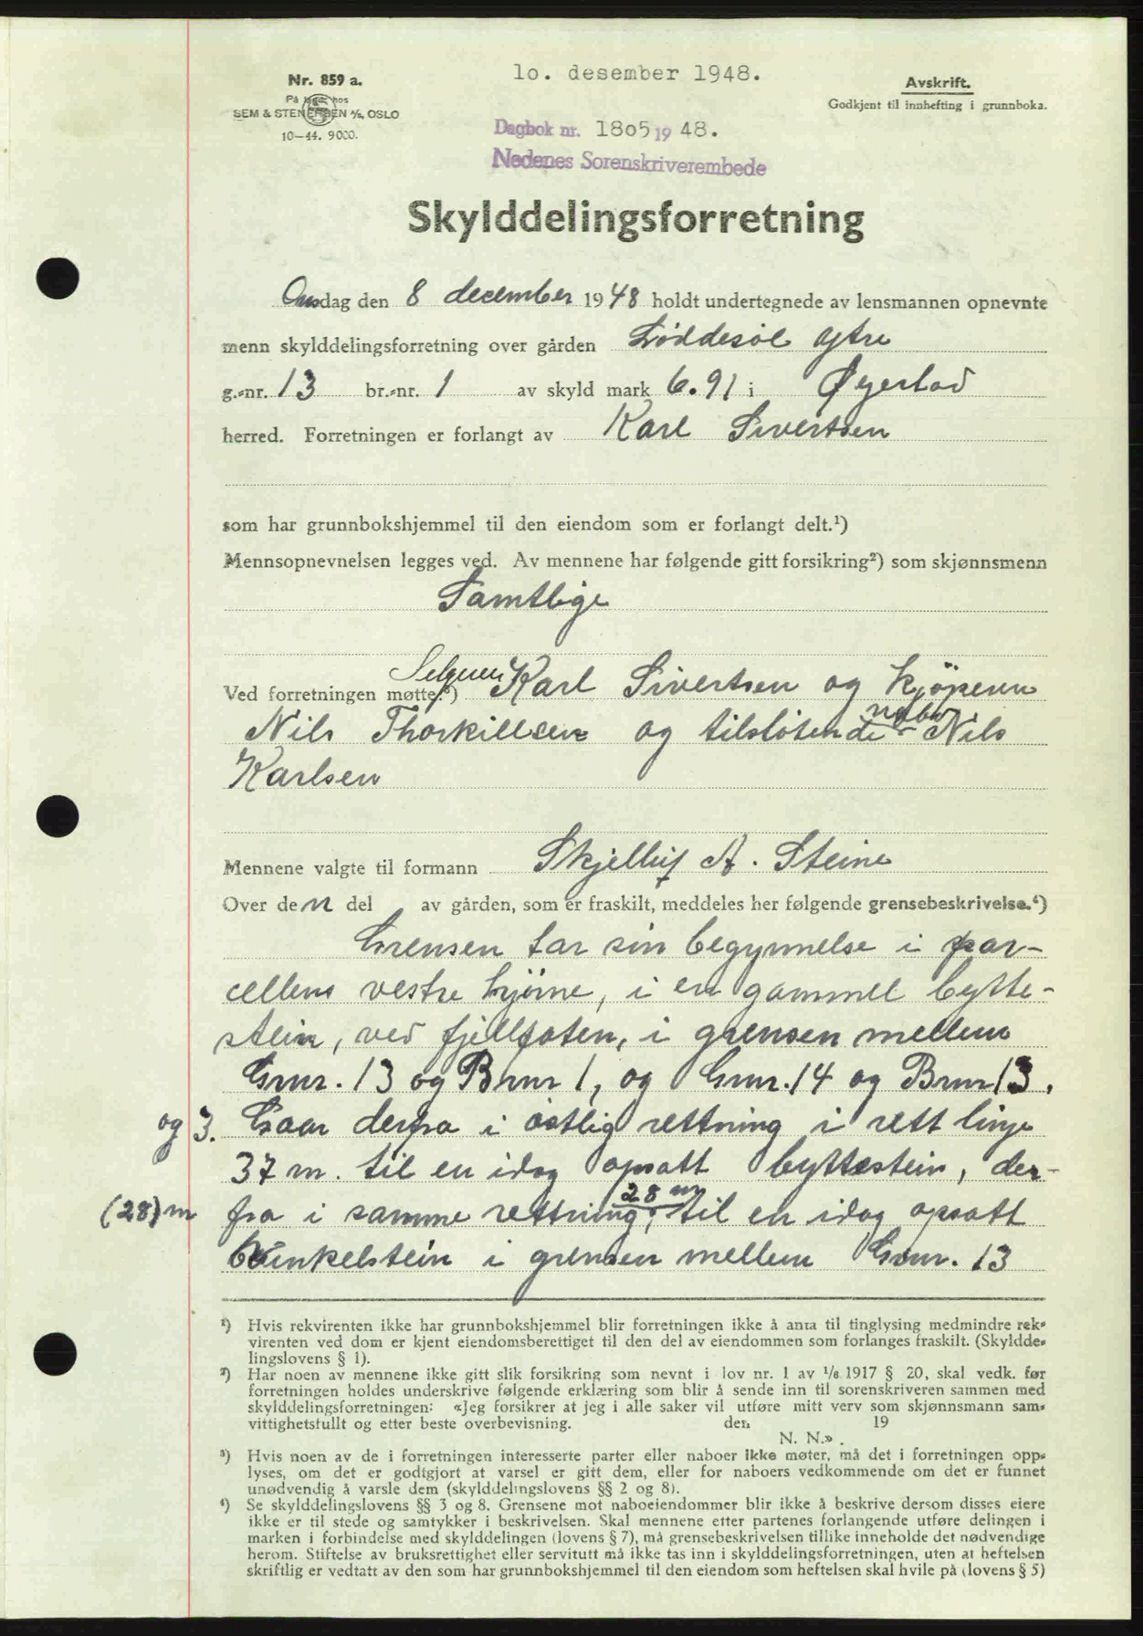 Nr. 859 a.
På lager hos
SEM & STENERSEN A/S, OSLO
10-44. 9000.
10. desember 1948.
Avskrift.
Godkjent til innhefting i grunnboka.
Dagbok nr. 1805 19 48.
Nedenes Sorenskriverembede
Skylddelingsforretning
Onsdag den 8 december 1948 holdt undertegnede av lensmannen opnevnte
menn skylddelingsforretning over gården Løddesøl øftre
g.-nr. 13 br.-nr. 1 av skyld mark 6.91 i Øyestad
herred. Forretningen er forlangt av Karl Sivertsen
som har grunnbokshjemmel til den eiendom som er forlangt delt.¹)
Mennsopnevnelsen legges ved. Av mennene har følgende gitt forsikring²) som skjønnsmenn
Samtlige
Ved forretningen møtte:³) Selgeren Karl Sivertsen og kjöperen
Nils Thorkillsen og tilstötende nabo - Nils
Karlsen
Mennene valgte til formann Skjellulf A. Steine
Over den del av gården, som er fraskilt, meddeles her følgende grensebeskrivelse.⁴)
Grensen tar sin begynnelse i par-
cellens vestre hjörne, i en gammel bytte-
stein, ved fjellfoten, i grensen mellem
Gnr. 13 og Brnr 1, og Gnr. 14 og Brnr 13.
og 3. Gaar derfra i östlig rettning i rett linje
37 m. til en idag opsatt byttestein, der-
(28) m fra i samme rettning, 28 m til en idag opsatt
Vinkelstein i grensen mellem Gnr. 13
¹) Hvis rekvirenten ikke har grunnbokshjemmel blir forretningen ikke å anta til tinglysing medmindre rek-
virenten ved dom er kjent eiendomsberettiget til den del av eiendommen som forlanges fraskilt. (Skyldde-
lingslovens § 1).
²) Har noen av mennene ikke gitt slik forsikring som nevnt i lov nr. 1 av 1/6 1917 § 20, skal vedk. før
forretningen holdes underskrive følgende erklæring som blir å sende inn til sorenskriveren sammen med
skylddelingsforretningen: «Jeg forsikrer at jeg i alle saker vil utføre mitt verv som skjønnsmann sam-
vittighetsfullt og etter beste overbevisning. den 19
N. N.».
³) Hvis noen av de i forretningen interesserte parter eller naboer ikke møter, må det i forretningen opp-
lyses, om det er godtgjort at varsel er gitt dem, eller for naboers vedkommende om det er funnet
unødvendig å varsle dem (skylddelingslovens §§ 2 og 8).
⁴) Se skylddelingslovens §§ 3 og 8. Grensene mot naboeiendommer blir ikke å beskrive dersom disses eiere
ikke er til stede og samtykker i beskrivelsen. Skal mennene etter partenes forlangende utføre delingen i
marken i forbindelse med skylddelingen (lovens § 7), må grensebeskrivelsen tillike inneholde det nødvendige
herom. Stiftelse av bruksrettighet eller servitutt må ikke tas inn i skylddelingsforretningen, uten at heftelsen
skriftlig er vedtatt av den som har grunnbokshjemmel til den eiendom som heftelsen skal hvile på (lovens § 5)